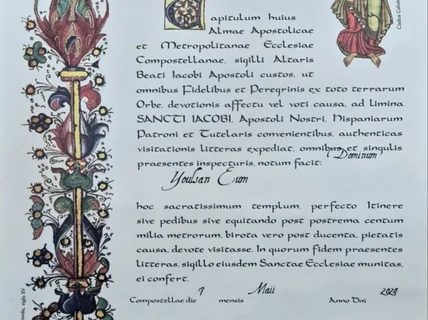 Capitulum huius
Almae Apostolicae
et Metropolitanae Ecclesiae
Compostellanae, sigilli Altaris
Beati Iacobi Apostoli custos, ut
omnibus Fidelibus et Peregrinis ex toto terrarum
Orbe, devotionis affectu vel voti causa, ad limina
SANCTI IACOBI, Apostoli Nostri, Hispaniarum
Patroni et Tutelaris convenientibus, authenticas
visitationis litteras expediat, omnibus et singulis
praesentes inspecturis, notum facit: Dominum
Youlsan Eum
hoc sacratissimum templum, perfecto Itinere
sive pedibus sive equitando post postrema centum
milia metrorum, birota vero post ducenta, pietatis
causa, devote visitasse. In quorum fidem praesentes
litteras, sigillo eiusdem Sanctae Ecclesiae munitas,
ei confert.
Compostellae die 7 mensis Maii Anno Dni